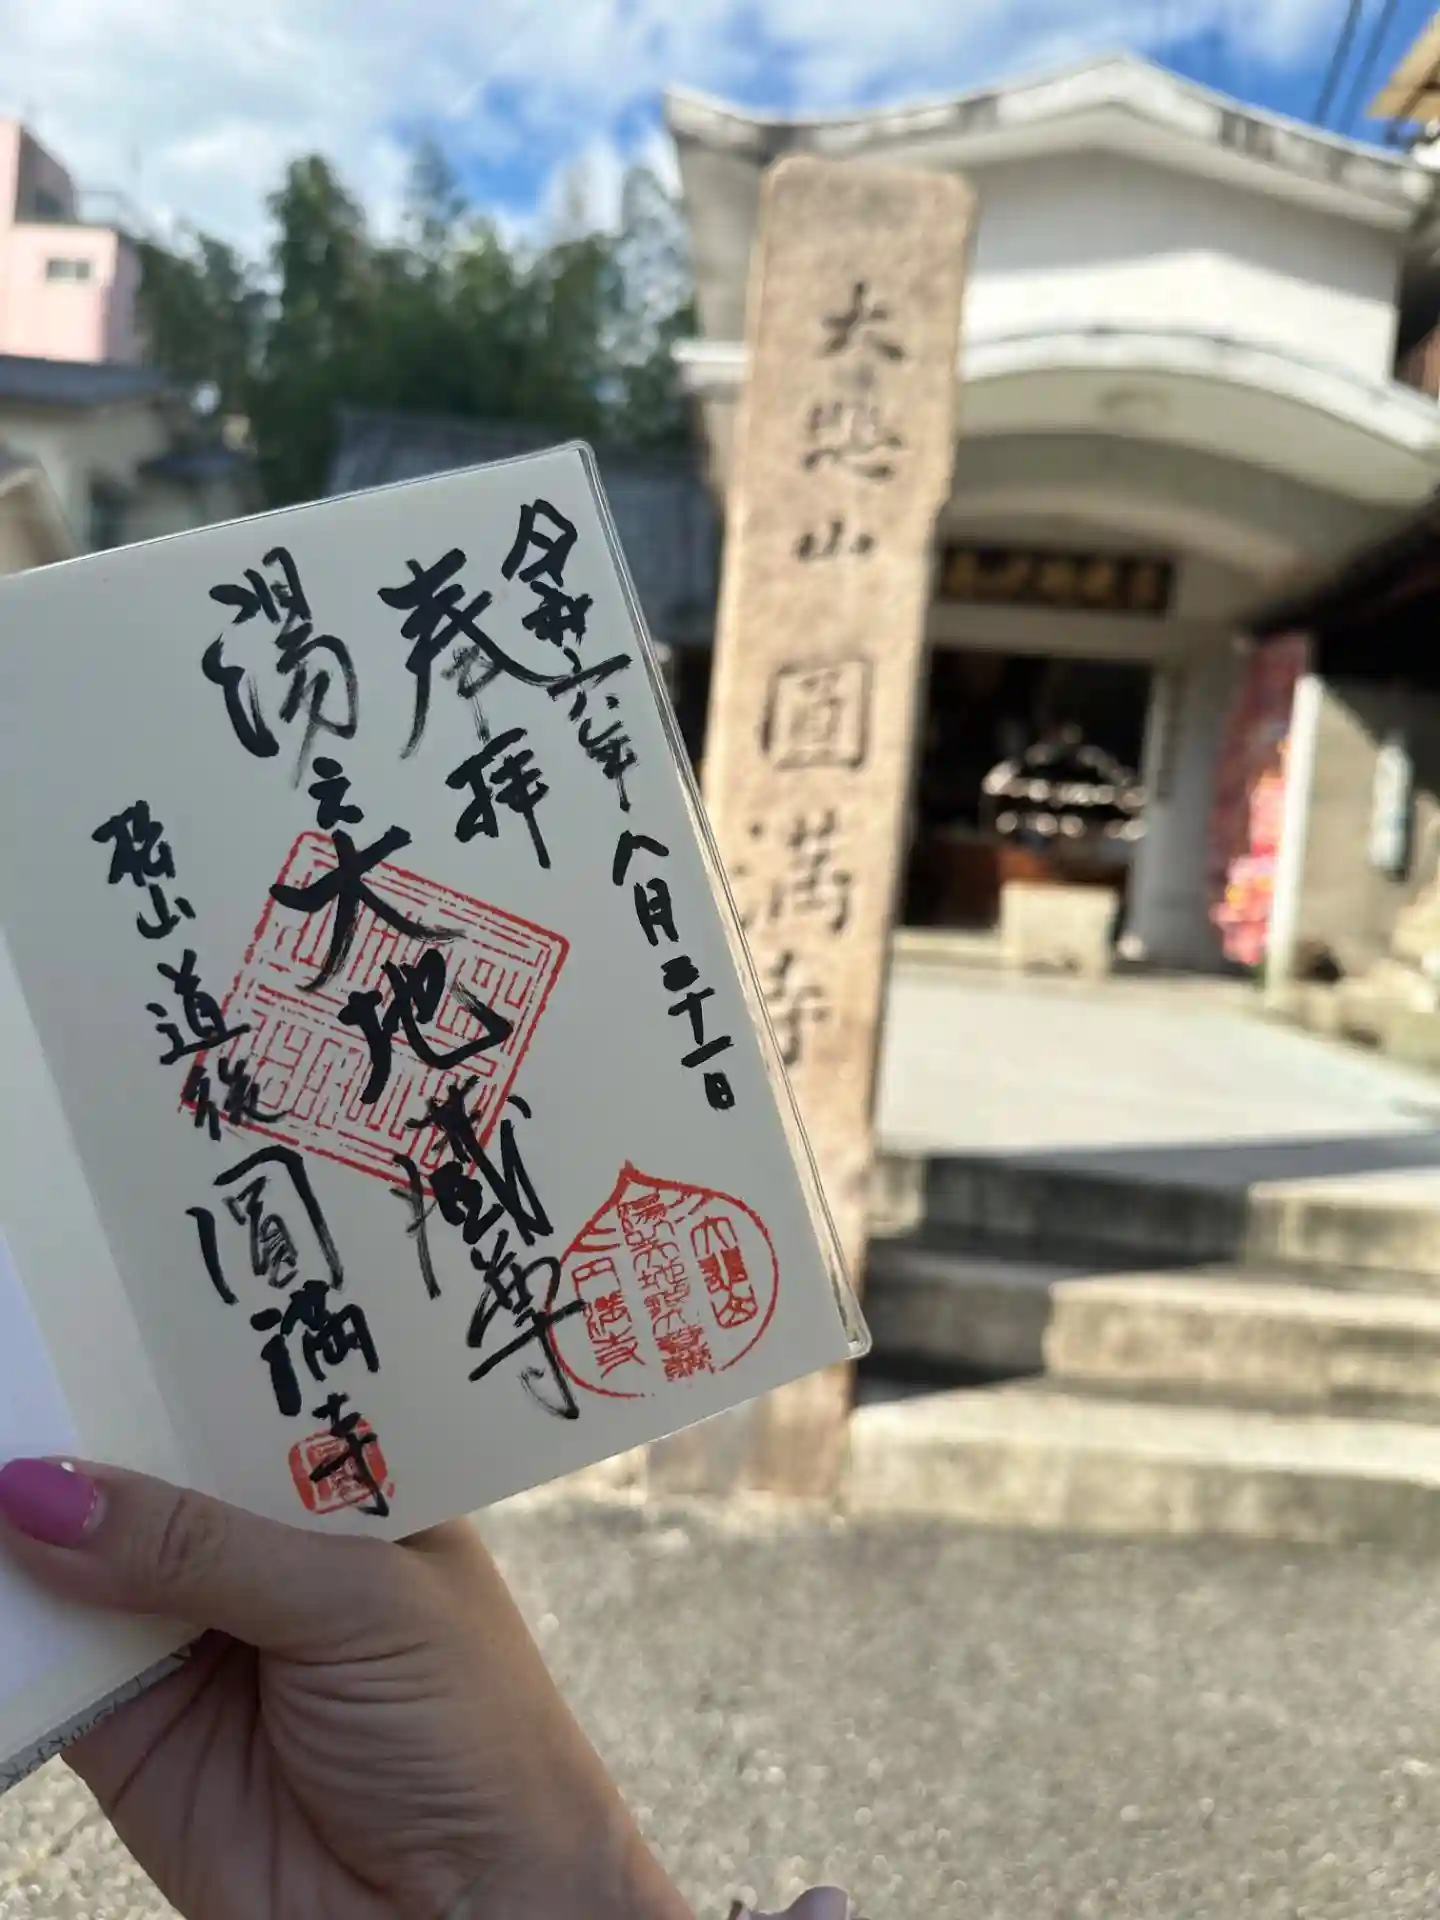 大悲山圓満寺
令和六年八月二十一日
奉拝
湯之大地蔵尊
松山道後圓満寺